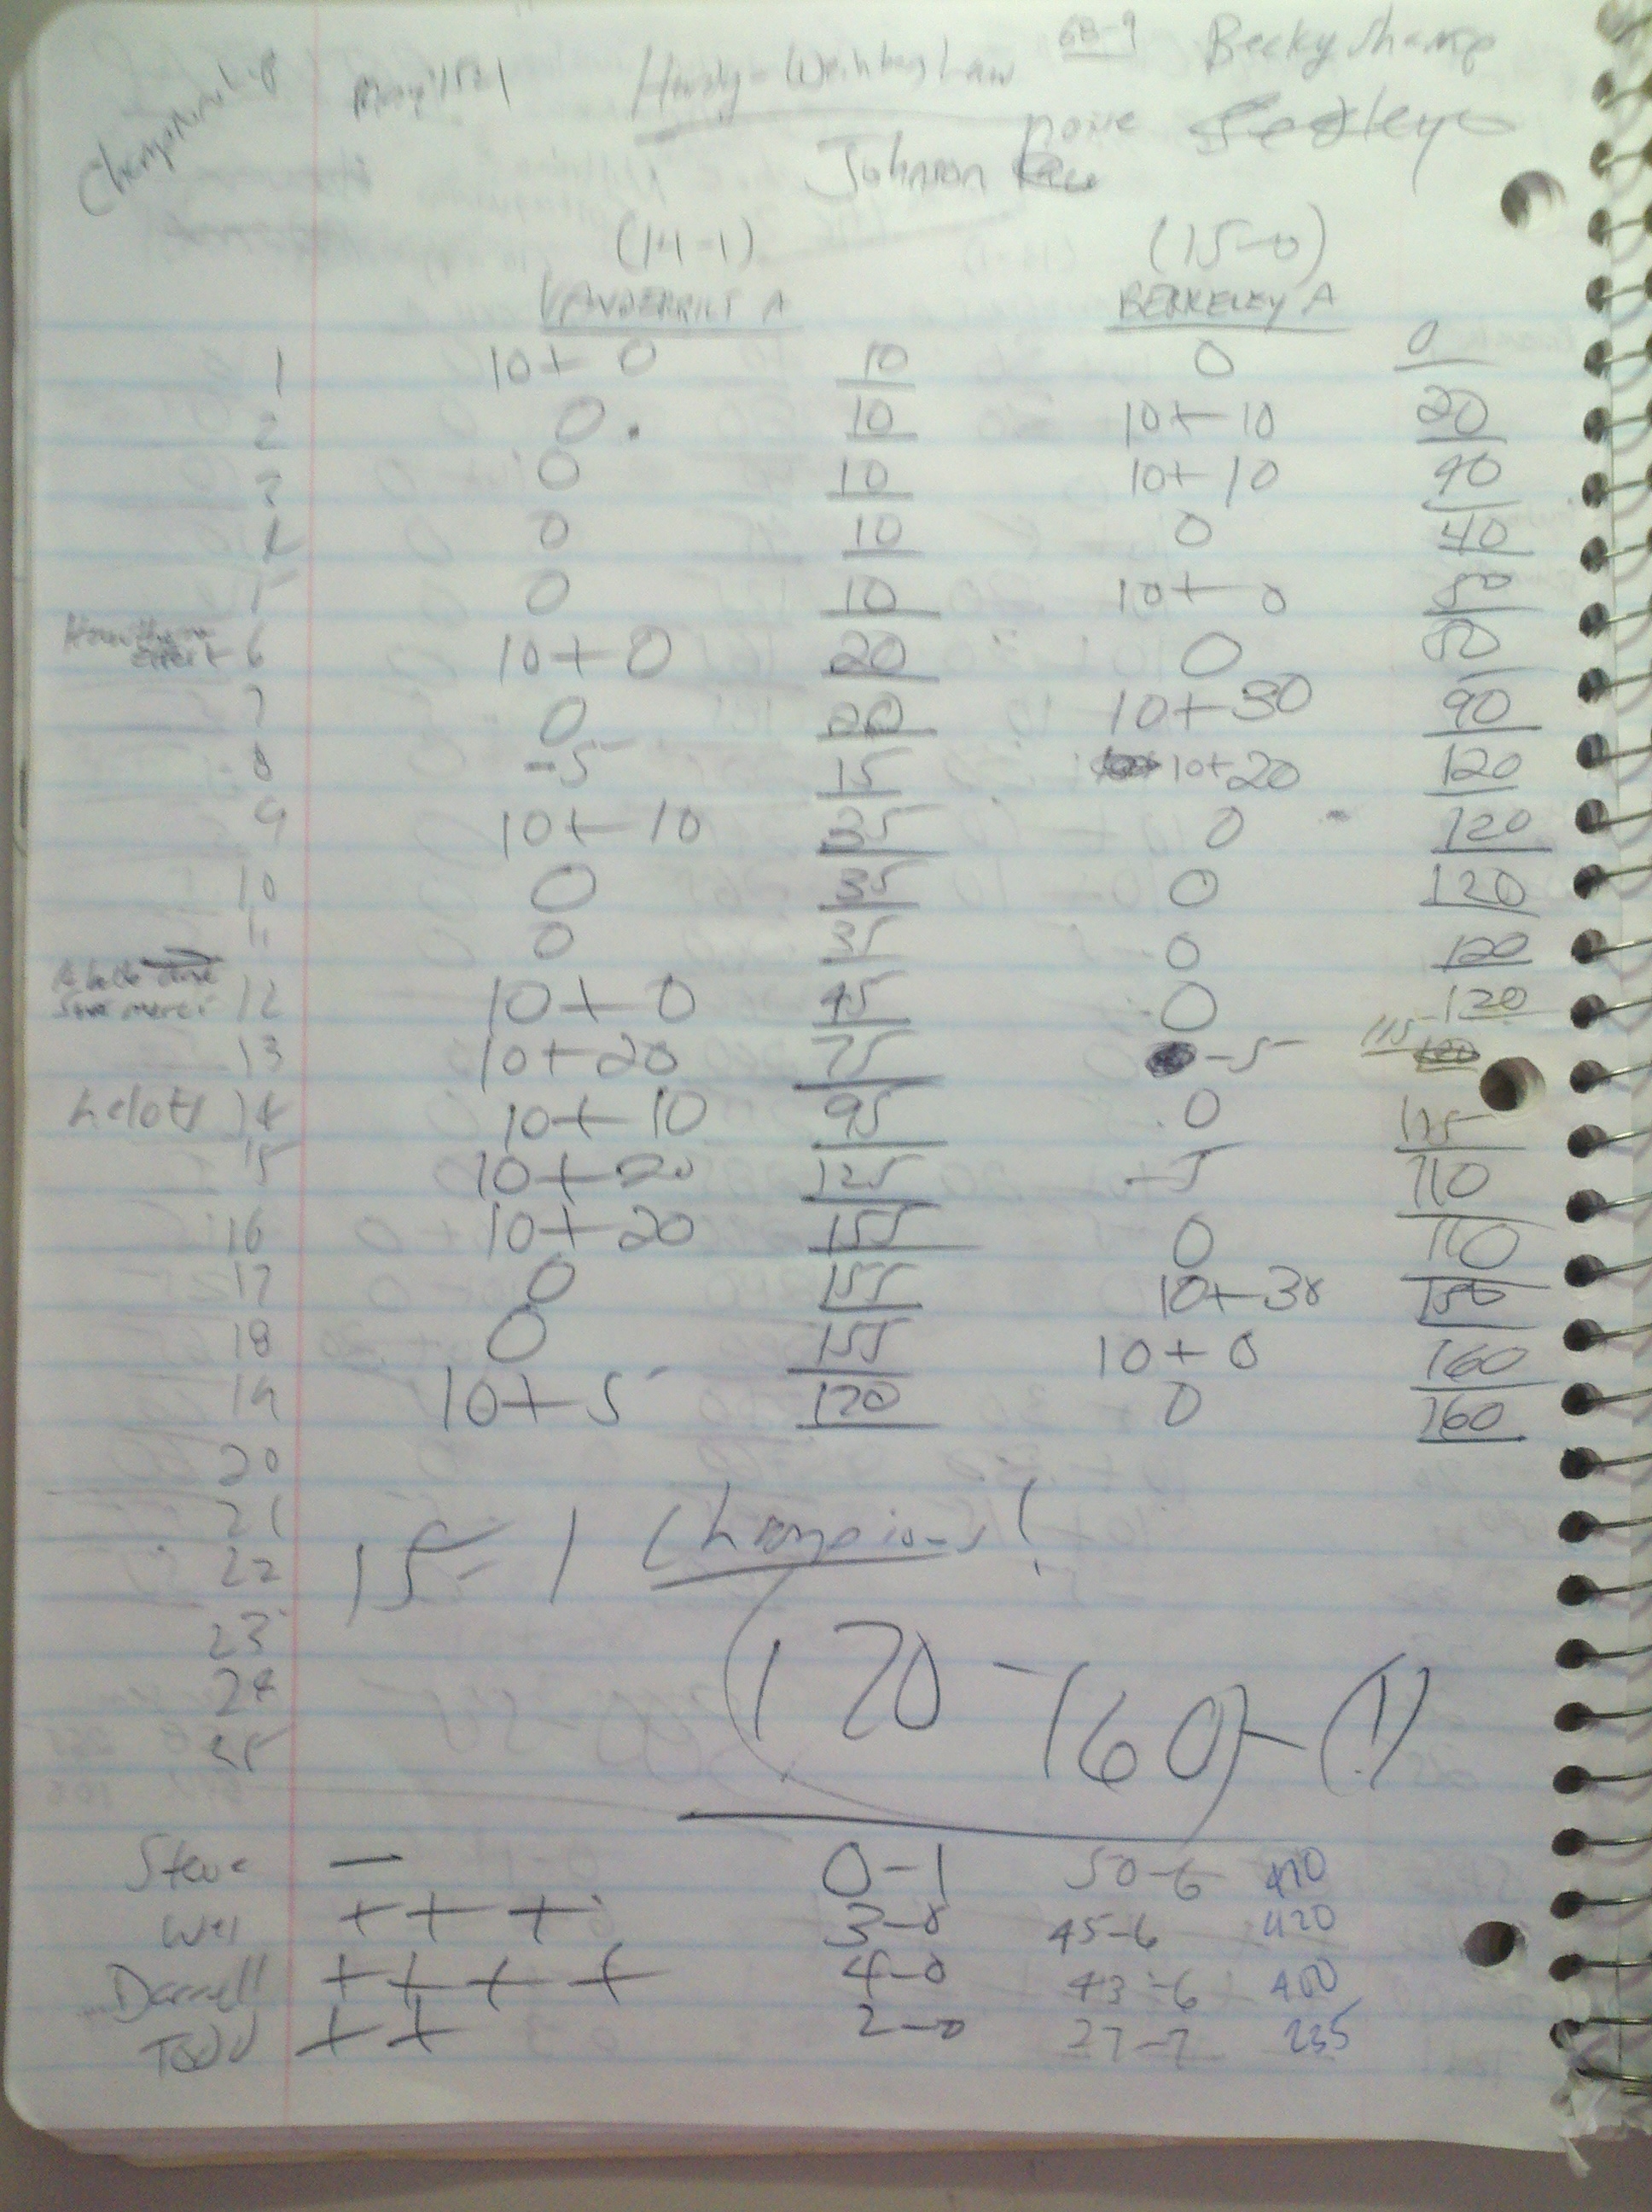 Championship Hardy-Weinberg Law 6B-9 Becky Sharp
Johnson none
(14-1) (15-0)
VANDERBILT A BERKELEY A
1 10+0 10 0 0
2 0 10 10+10 20
3 0 10 10+10 40
4 0 10 0 40
5 0 10 10+0 50
Hawthorne
effect 6 10+0 20 0 50
7 0 20 10+30 90
8 -5 15 10+20 120
9 10+10 35 0 120
10 0 35 0 120
11 0 35 0 120
12 10+0 45 0 120
13 10+20 75 -5 115
helots 14 10+10 95 0 115
15 10+20 125 -5 110
16 10+20 155 0 110
17 0 155 10+30 150
18 0 155 10+0 160
19 10+5 170 0 160
20
21
22 15-1 Champions!
23
24 (170-160)-(1)
25
Steve — 0-1 50-6
Will + + + 3-0 45-6 420
Darrell + + + + 4-0 43-6 400
Todd + + 2-0 27-7 235